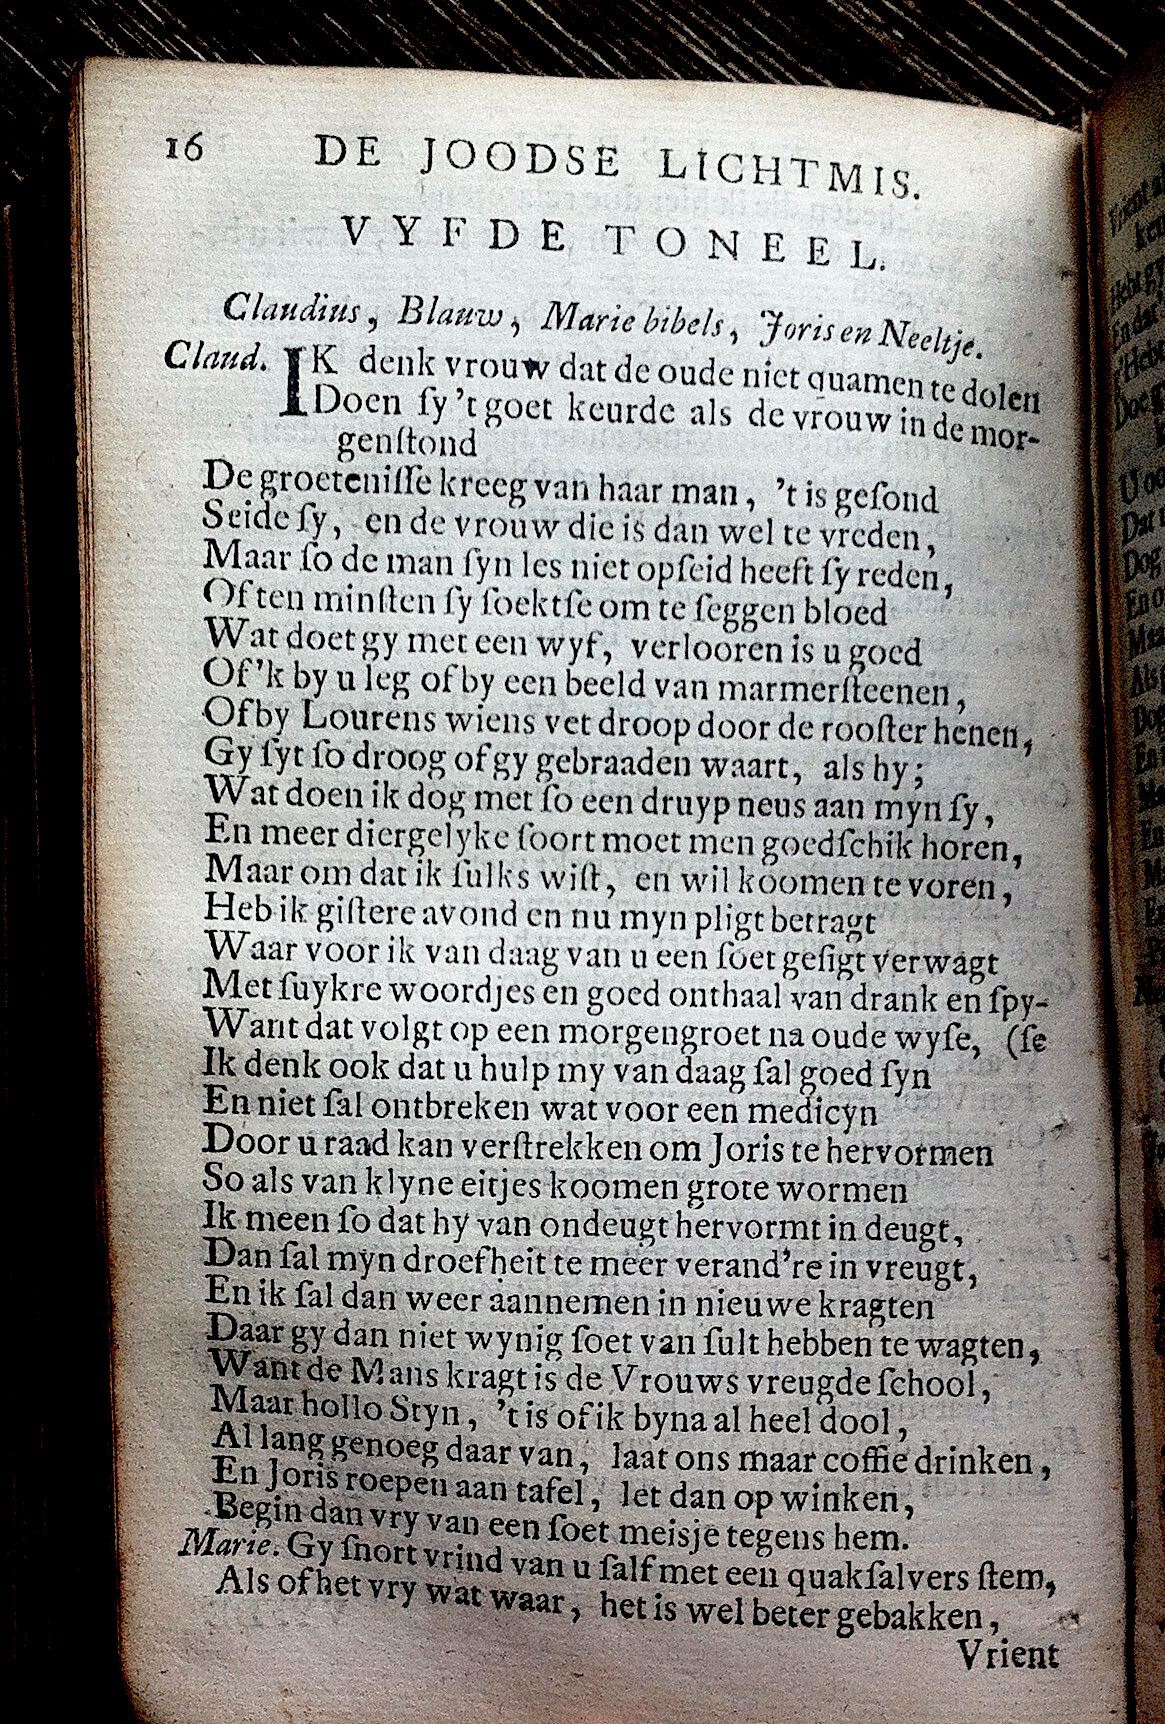 16 DE JOODSE LICHTMIS.
VYFDE TONEEL.
Claudius, Blauw, Marie bibels, Joris en Neeltje.
Claud. IK denk vrouw dat de oude niet quamen te dolen
Doen ſy 't goet keurde als de vrouw in de mor-
genſtond
De groeteniſſe kreeg van haar man, 't is geſond
Seide ſy, en de vrouw die is dan wel te vreden,
Maar ſo de man ſyn les niet opſeid heeft ſy reden,
Of ten minſten ſy ſoektſe om te ſeggen bloed
Wat doet gy met een wyf, verlooren is u goed
Of 'k by u leg of by een beeld van marmerſteenen,
Of by Lourens wiens vet droop door de rooſter henen,
Gy ſyt ſo droog of gy gebraaden waart, als hy;
Wat doen ik dog met ſo een druyp neus aan myn ſy,
En meer diergelyke ſoort moet men goedſchik horen,
Maar om dat ik ſulks wiſt, en wil koomen te voren,
Heb ik giſtere avond en nu myn pligt betragt
Waar voor ik van daag van u een ſoet geſigt verwagt
Met ſuykre woordjes en goed onthaal van drank en ſpy-
Want dat volgt op een morgengroet na oude wyſe, (ſe
Ik denk ook dat u hulp my van daag ſal goed ſyn
En niet ſal ontbreken wat voor een medicyn
Door u raad kan verſtrekken om Joris te hervormen
So als van klyne eitjes koomen grote wormen
Ik meen ſo dat hy van ondeugt hervormt in deugt,
Dan ſal myn droefheit te meer verand're in vreugt,
En ik ſal dan weer aannemen in nieuwe kragten
Daar gy dan niet wynig ſoet van ſult hebben te wagten,
Want de Mans kragt is de Vrouws vreugde ſchool,
Maar hollo Styn, 't is of ik byna al heel dool,
Al lang genoeg daar van, laat ons maar coffie drinken,
En Joris roepen aan tafel, let dan op winken,
Begin dan vry van een ſoet meisje tegens hem.
Marie. Gy ſnort vrind van u ſalf met een quakſalvers ſtem,
Als of het vry wat waar, het is wel beter gebakken,
Vrient